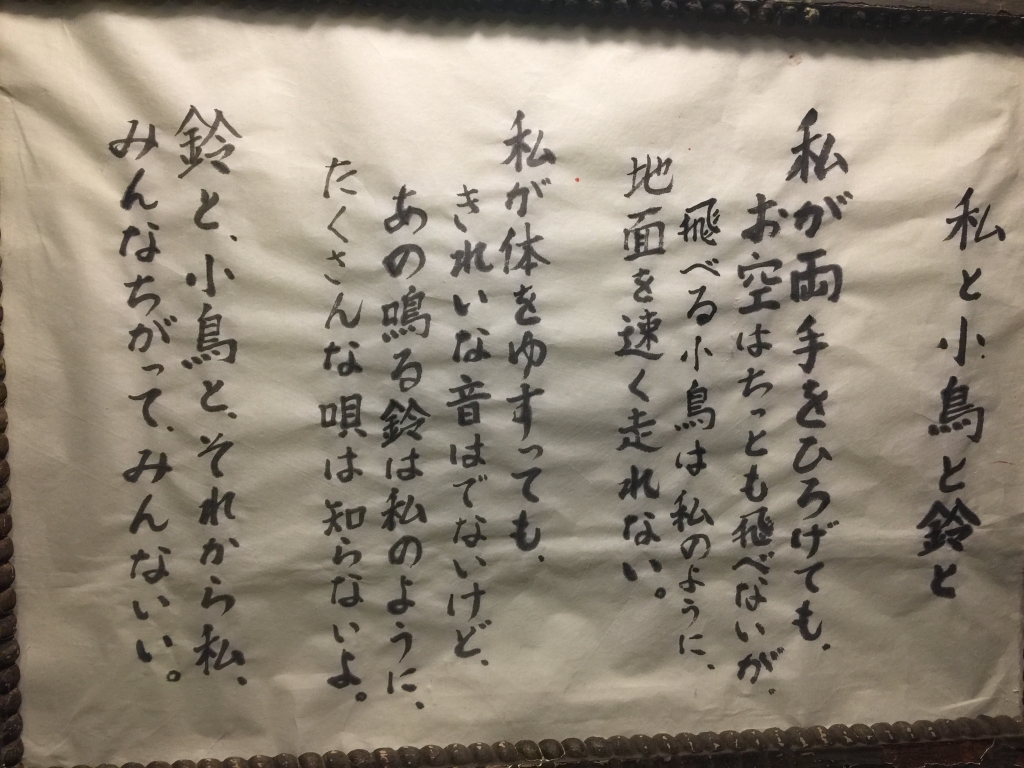 私と小鳥と鈴と
私が両手をひろげても、
お空はちっとも飛べないが、
飛べる小鳥は私のように、
地面を速く走れない。
私が体をゆすっても、
きれいな音はでないけど、
あの鳴る鈴は私のように、
たくさんな唄は知らないよ。
鈴と、小鳥と、それから私、
みんなちがって、みんないい。